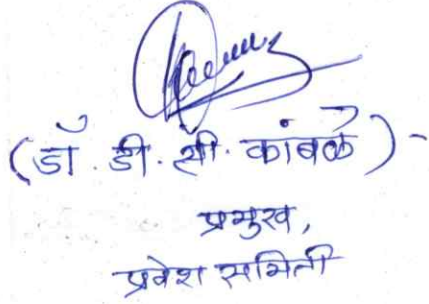 (डॉ. डी. सी. कांबळे)-
प्रमुख,
प्रवेश समिती